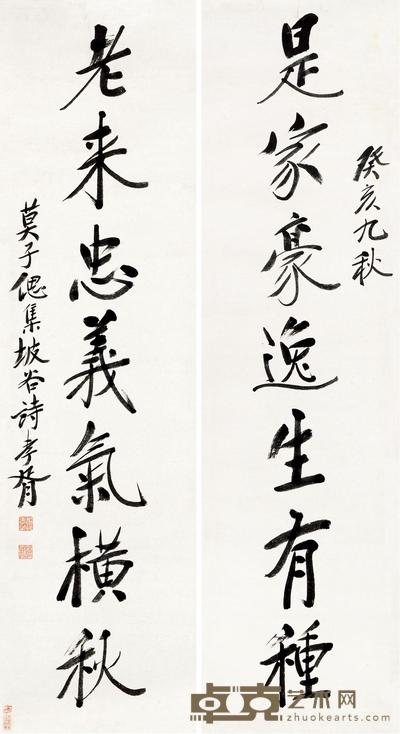 癸亥九秋
是家豪逸生有種
老来忠義氣橫秋
莫子偲集坡谷詩孝胥
卓克艺术网
zhuokearts.com